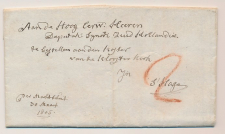 Aan de Hoog Eerw. Heeren
Deputati Synodi Zuid Hollandiæ
te bezellen aan den Koster
van de Klooster Kerk
In
S. Hage
2
per
20 Maart
1805